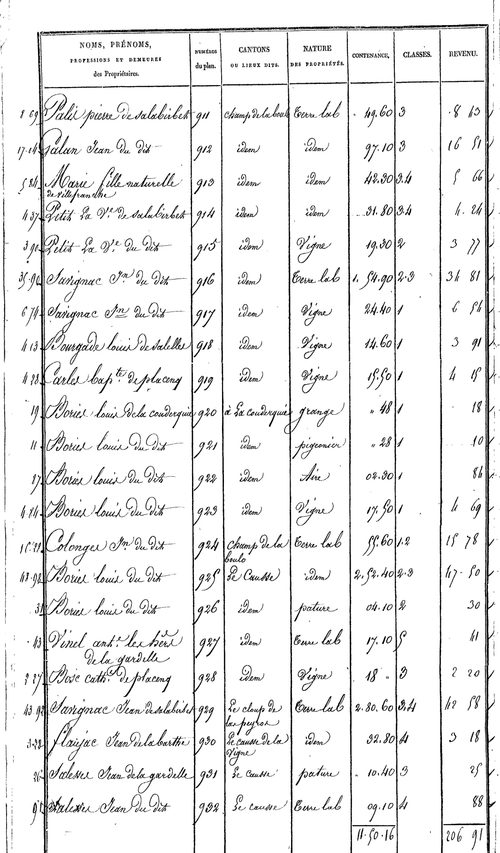 NOMS, PRÉNOMS, PROFESSIONS ET DEMEURES des Propriétaires. NUMÉROS du plan. CANTONS OU LIEUX DITS. NATURE DES PROPRIÉTÉS. CONTENANCE. CLASSES. REVENU.
Palis pierre de salabirbet 911 champ de la boulo Terre lab 49.60 3 8 43
Galan Jean du dit 912 idem idem 97.10 3 16 51
Marie fille naturelle de villefranche 913 idem idem 42.30 3.4 5 66
Petit La Ve. de salabirbet 914 idem idem 31.80 3.4 4.24
Petit La Ve. du dit 915 idem Vigne 19.30 2 3 77
Savignac Jn. du dit 916 idem Terre lab 1. 54.90 2-3 34 81
Savignac Jn. du dit 917 idem Vigne 24.40 1 6 54
Bourgade louis de salelles 918 idem Vigne 14.60 1 3 91
Carles bapte. de placenq 919 idem Vigne 15.50 1 4 15
19 Bories louis de la couderquie 920 à La couderquie grange " 48 1 18
11 Bories louis du dit 921 idem pigeonier " 28 1 10
Bories louis du dit 922 idem Aire 02.30 1 84
Bories louis du dit 923 idem Vigne 17.50 1 4 69
Colonges Jn. du dit 924 champ de la boulo Terre lab 55.60 1.2 15 78
Bories louis du dit 925 Le Causse idem 2.52.40 2-3 47-50
Bories louis du dit 926 idem pature 04.10 2 30
43 Vinel ant. les hérs. de la gardelle 927 idem Terre lab 17.10 5 41
Bosc cath. de placenq 928 idem Vigne 18 " 3 2 20
Savignac Jean de salabirbet 929 Le champ de la peyros Terre lab 2.80.60 3.4 42 58
Flaujac Jean de la barthe 930 Le causse de la Vigne idem 32.80 4 3 18
Salesses Jean de la gardelle 931 Le causse pature 10.40 3 25
Salesses Jean du dit 932 Le causse Terre lab 09.10 4 88
11.50.16 206 91